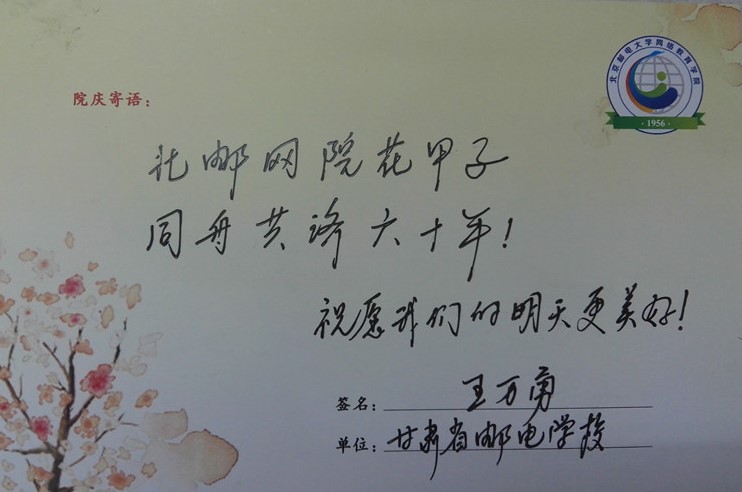 北京邮电大学网络教育学院
· 1956 ·
院庆寄语：
北邮网院花甲子
同舟共济六十年！
祝愿我们的明天更美好！
签名：王万勇
单位：甘肃省邮电学校